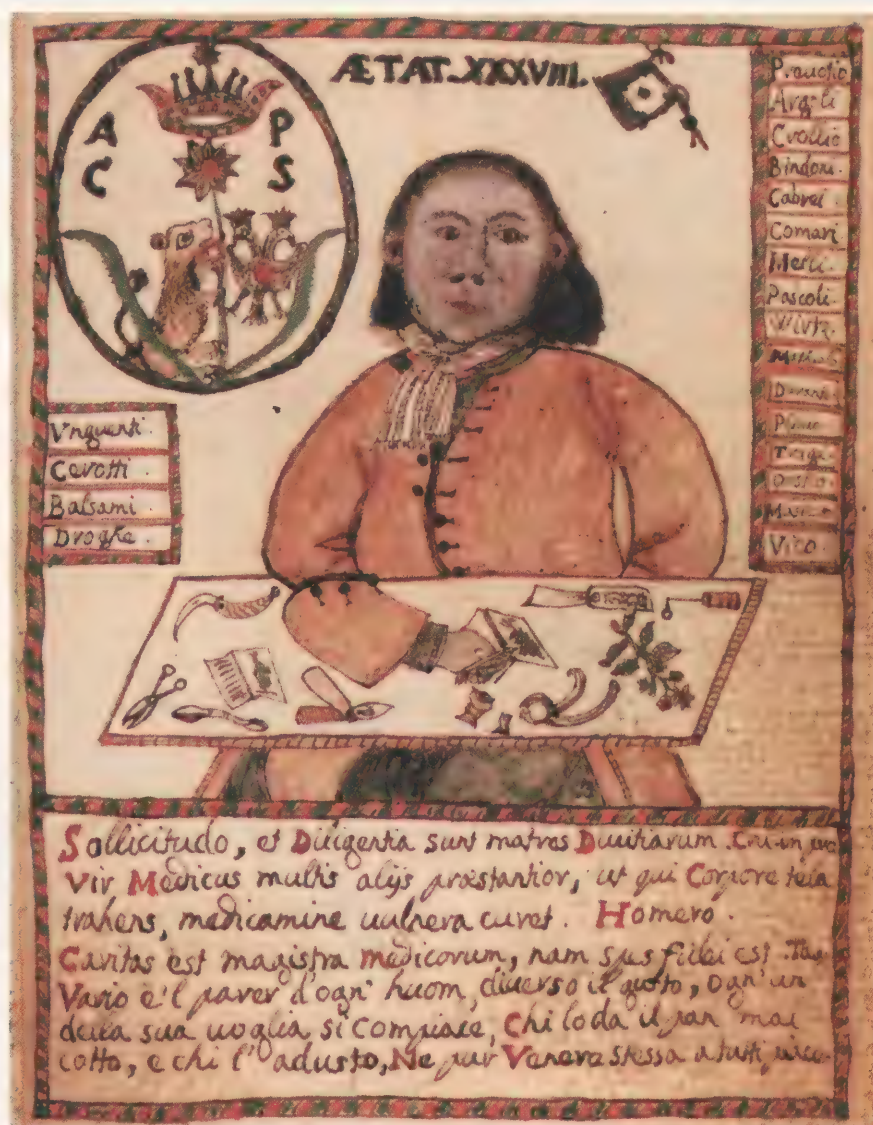 A P
C S
ÆTAT. XXXVIII.
Vnguenti.
Cerotti.
Balsami.
Droghe.
Argoli
Crollio
Bindoni.
Cabrei.
Comari
Merci.
Pascoli.
Wirtz.
Vito.
Sollicitudo, et Diligentia sunt matres Diuitiarum.
Vir Medicus multis alijs præstantior, ut qui Corpore tela
trahens, medicamine uulnera curet. Homero.
Caritas est magistra medicorum, nam spes fidei est.
Vario e'l parer d'ogn' huom, diuerso il gusto, Ogn' un
della sua uoglia si compiace, Chi loda il pan mal
cotto, e chi l' adusto, Ne pur Venere stessa a tutti